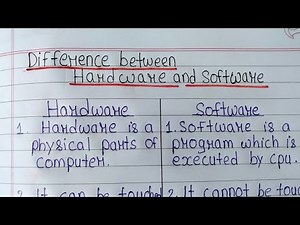 Difference between
Hardware and Software
Hardware
Software
1. Hardware is a
physical parts of
computer.
1. Software is a
program which is
executed by cpu.
2. It can be touched
2. It cannot be tou